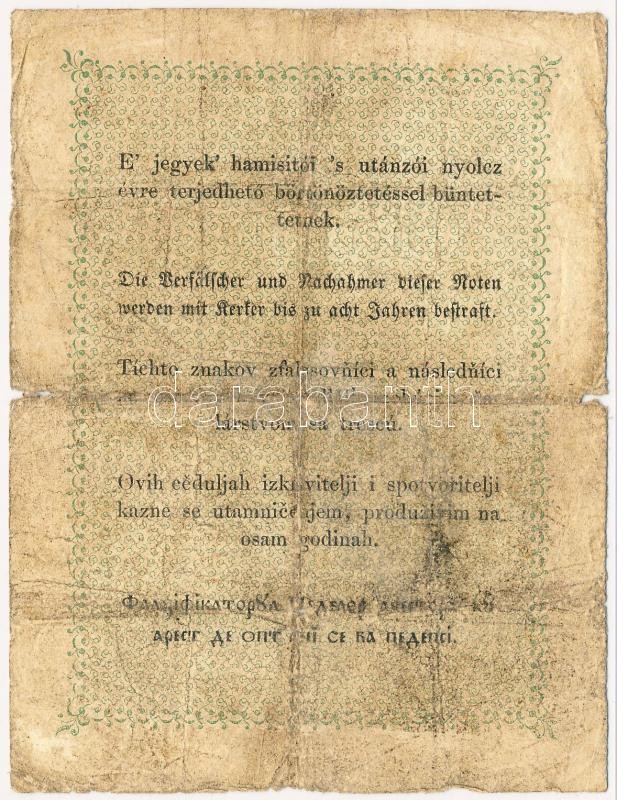 E' jegyek' hamisitói 's utánzói nyolcz
évre terjedhető börtönöztetéssel büntet-
tetnek.
Die Verfälscher und Nachahmer dieser Noten
werden mit Kerker bis zu acht Jahren bestraft.
Tíchto znakov zfalšovňíci a následňíci
darabanth
sa
Ovih cěduljah izkrivitelji i spotvoritelji
kazne se utamničenjem, produživim na
osam godinah.
арест де опт се ва педепсі.